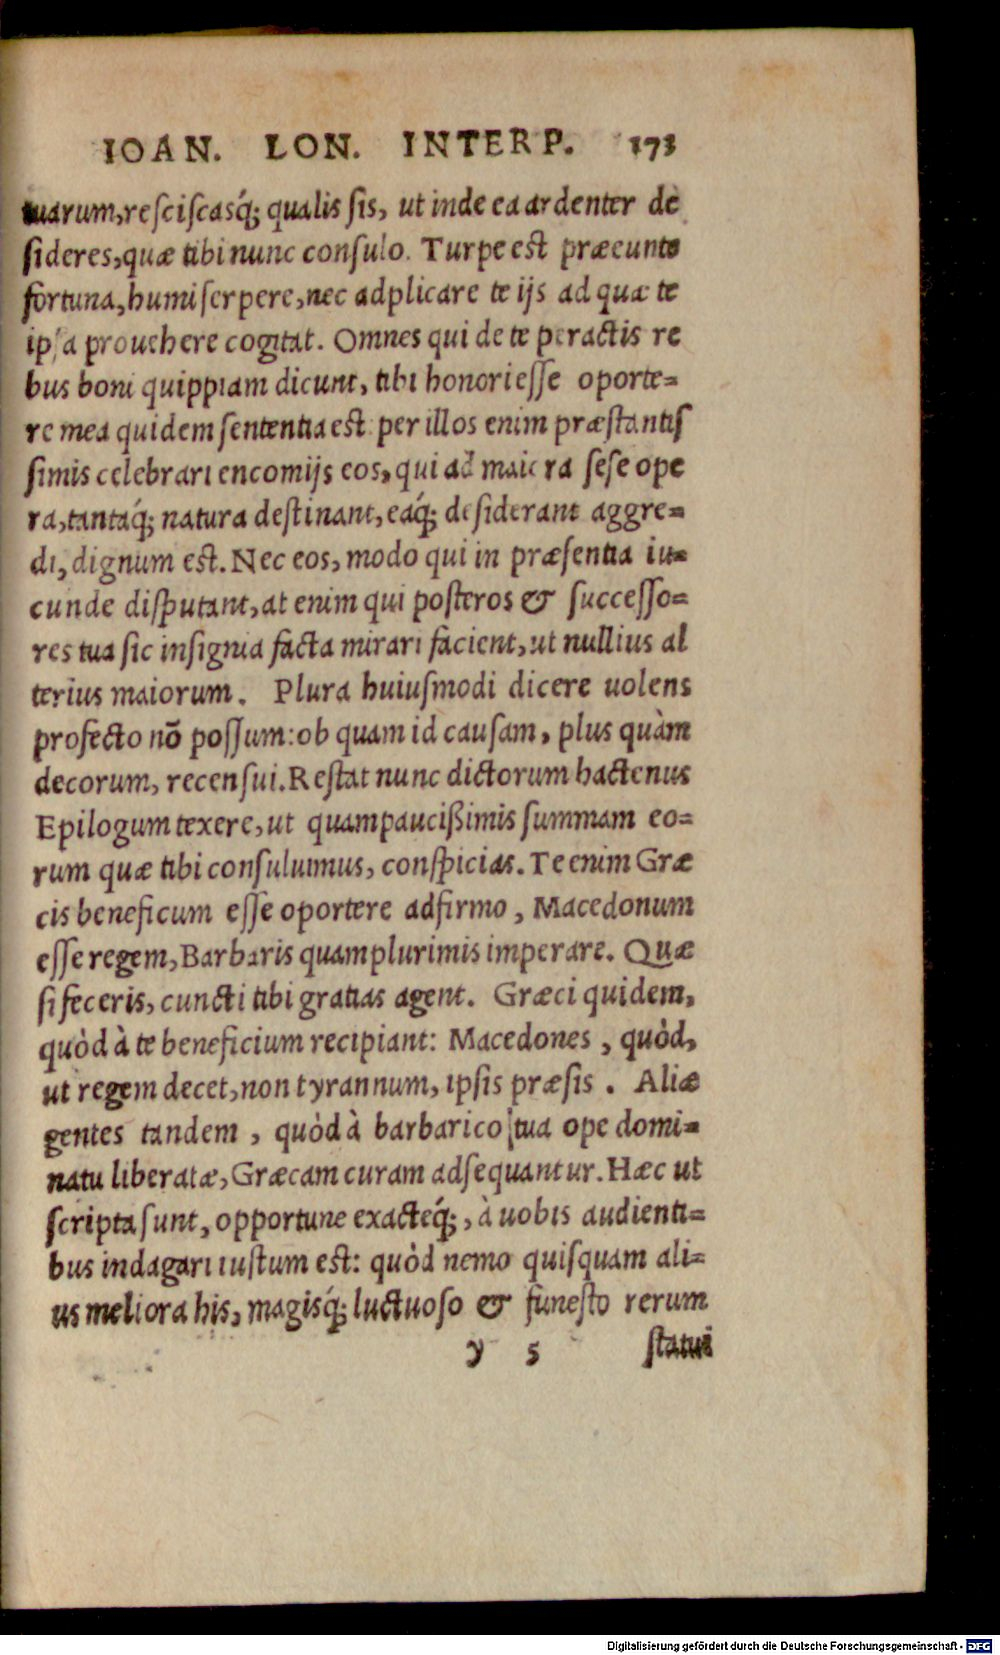 IOAN. LON. INTERP. 173
tuarum, resciscasq́; qualis sis, ut inde ea ardenter de
sideres, quæ tibi nunc consulo. Turpe est præeunte
fortuna, humi serpere, nec adplicare te ijs ad quæ te
ipsa prouehere cogitat. Omnes qui de te peractis re
bus boni quippiam dicunt, tibi honori esse oporte=
re mea quidem sententia est per illos enim præstantis
simis celebrari encomijs eos, qui ad maiora sese ope
ra, tantaq́; natura destinant, eaq́; desiderant aggre=
di, dignum est. Nec eos, modo qui in præsentia iu=
cunde disputant, at enim qui posteros & successo=
res tua sic insignia facta mirari facient, ut nullius al
terius maiorum. Plura huiusmodi dicere uolens
profecto nõ possum: ob quam id causam, plus quàm
decorum, recensui. Restat nunc dictorum hactenus
Epilogum texere, ut quampaucißimis summam eo=
rum quæ tibi consuluimus, conspicias. Te enim Græ
cis beneficum esse oportere adfirmo, Macedonum
esse regem, Barbaris quamplurimis imperare. Quæ
si feceris, cuncti tibi gratias agent. Græci quidem,
quòd à te beneficium recipiant: Macedones, quòd,
ut regem decet, non tyrannum, ipsis præsis. Aliæ
gentes tandem, quòd à barbarico tua ope domi=
natu liberatæ, Græcam curam adsequantur. Hæc ut
scripta sunt, opportune exacteq́;, à uobis audienti=
bus indagari iustum est: quòd nemo quisquam ali=
us meliora his, magisq́; luctuoso & funesto rerum
y 5 statui
Digitalisierung gefördert durch die Deutsche Forschungsgemeinschaft - DFG